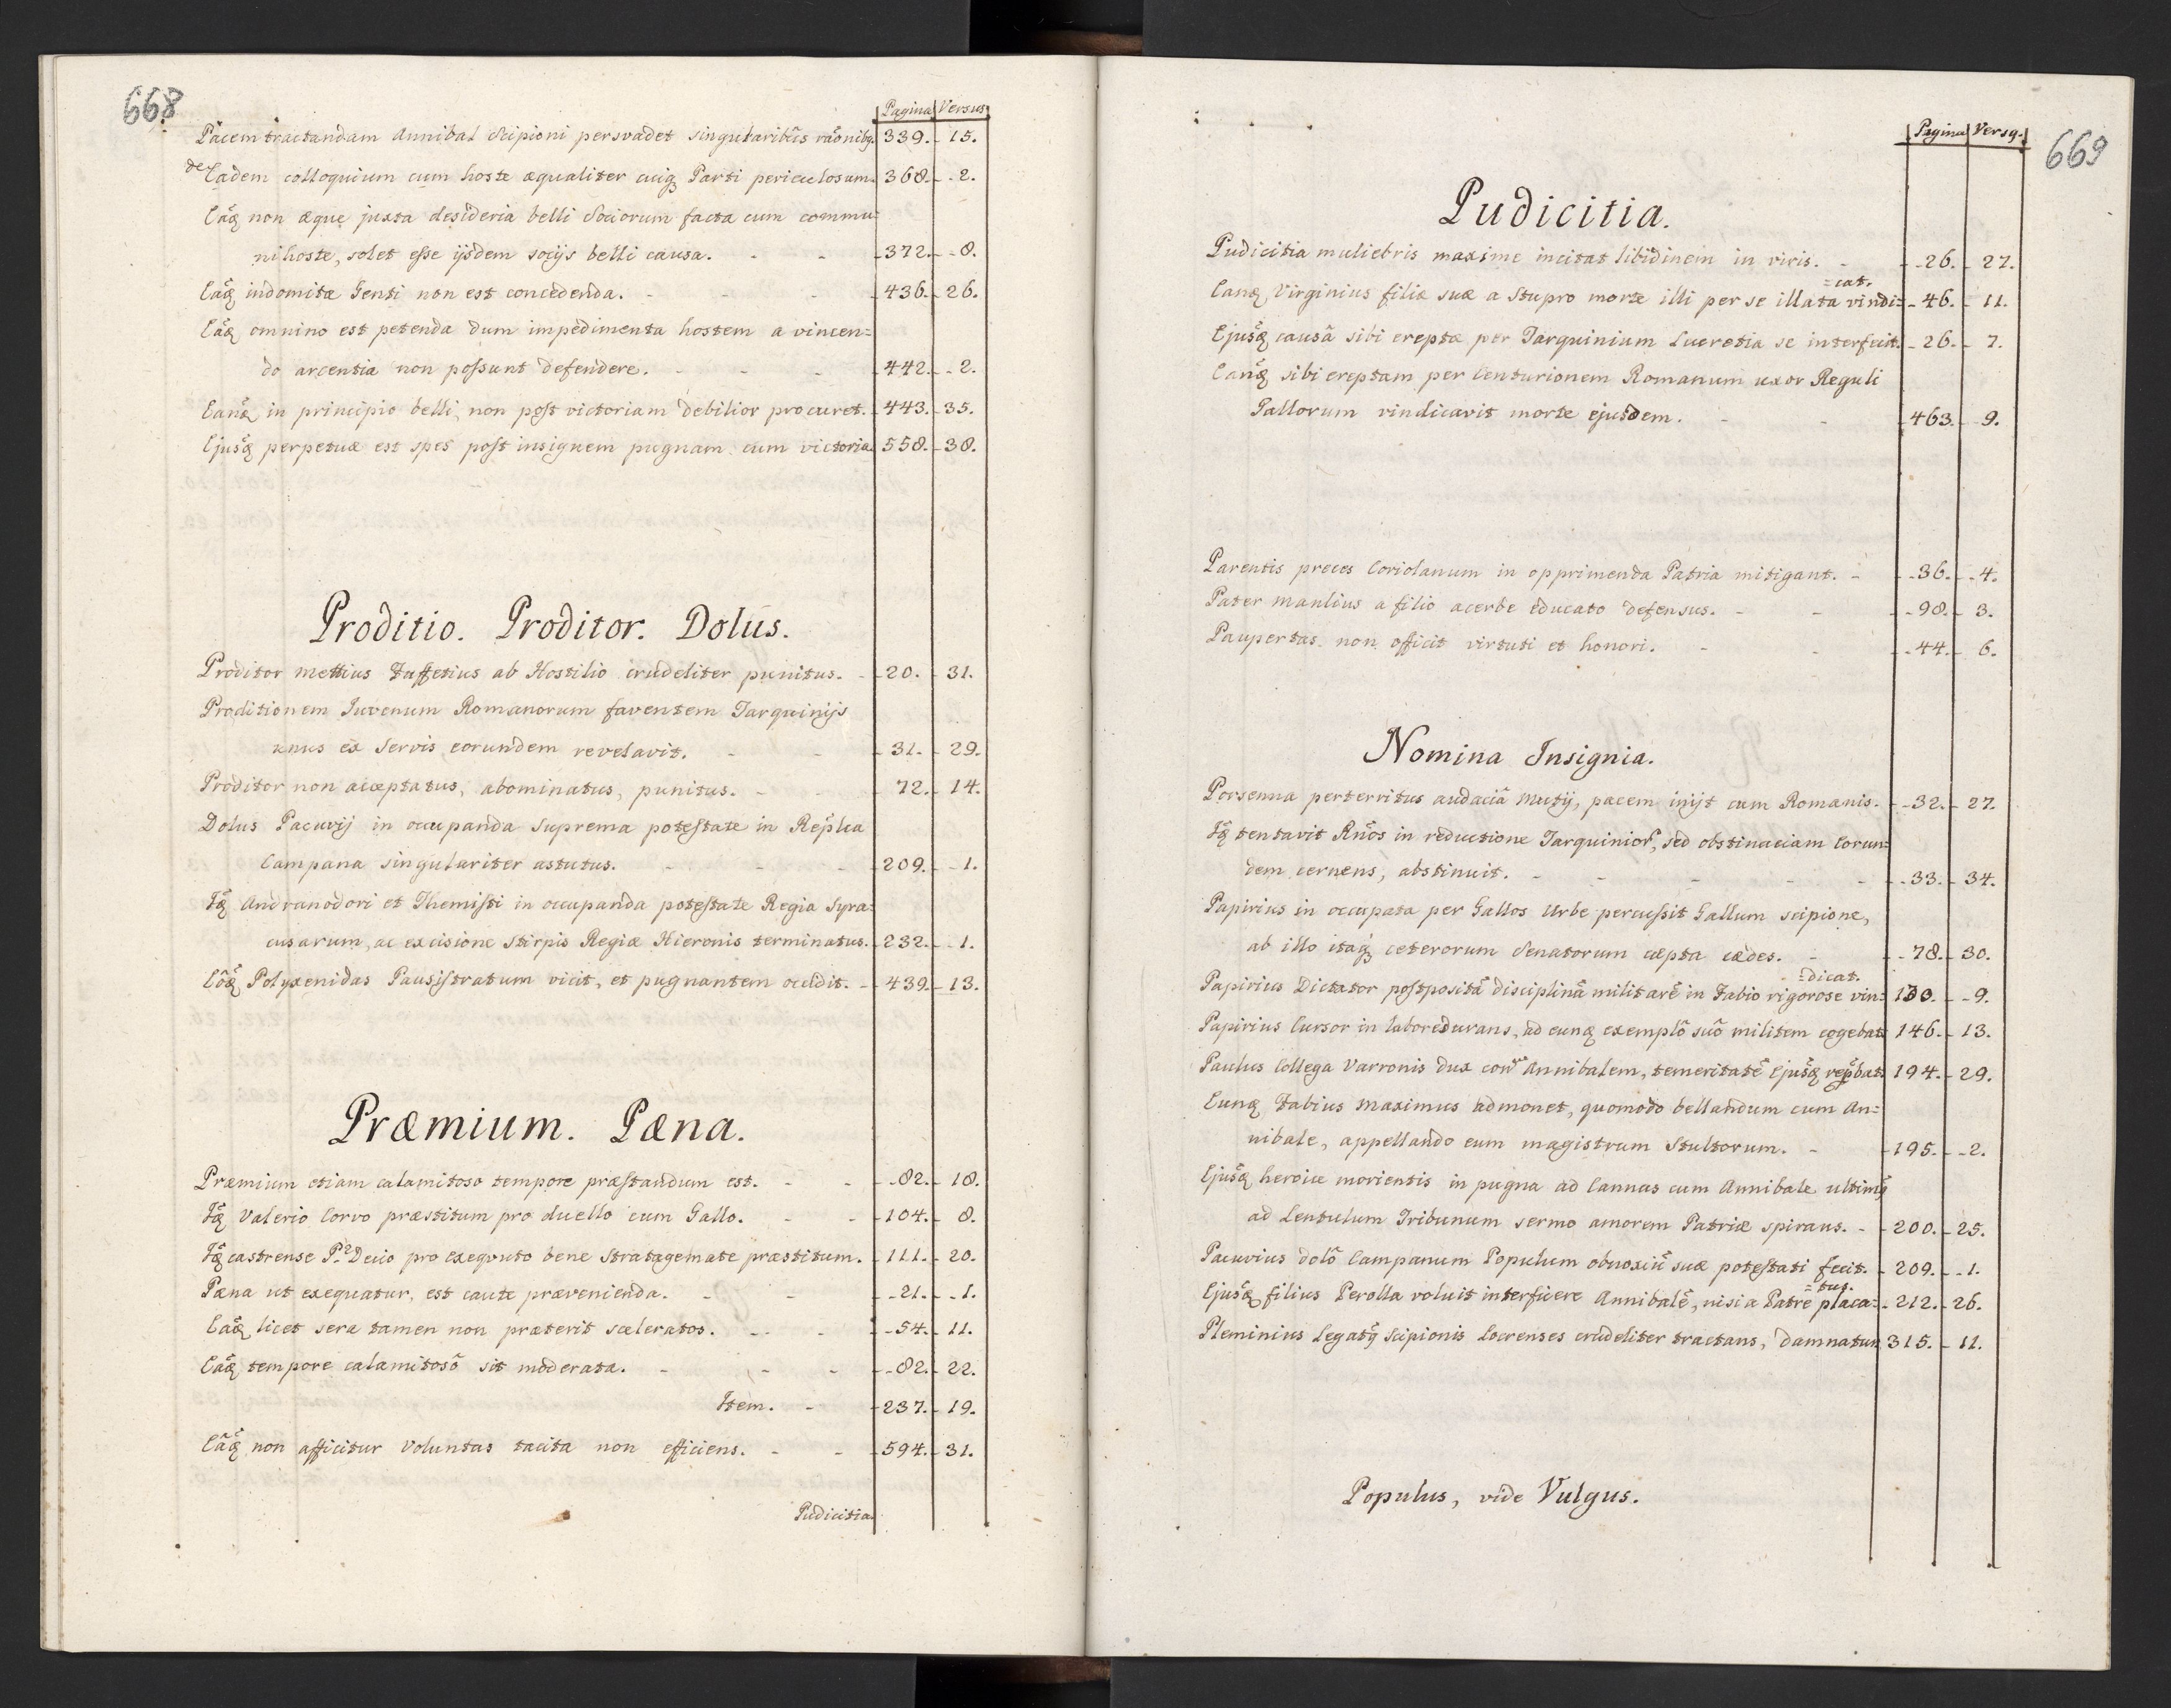 668
Pagina Versus
Pacem tractandam Annibal Scipioni persvadet singularibus raõnibq. 339. 15.
de Eadem colloquium cum hoste æqualiter cuiq Parti periculosum. 368. 2.
Eaq non æque juxta desideria belli Sociorum facta cum commu=
ni hoste, solet esse ijsdem socijs belli causa. 372. 8.
Eaq indomitæ Genti non est concedenda. 436. 26.
Eaq omnino est petenda dum impedimenta hostem a vincen=
do arcentia non possunt defendere. 442. 2.
Eanq in principio belli, non post victoriam debilior procuret. 443. 35.
Ejusq perpetuæ est spes post insignem pugnam cum victoria. 558. 38.
Proditio. Proditor. Dolus.
Proditor Mettius Fuffetius ab Hostilio crudeliter punitus. 20. 31.
Proditionem Juvenum Romanorum faventem Tarquinijs
unus ex Servis eorundem revelavit. 31. 29.
Proditor non acceptatus, abominatus, punitus. 72. 14.
Dolus Pacuvij in occupanda Suprema potestate in Repˡca
Campana singulariter astutus. 209. 1.
Iq Andranodori et Themisti in occupanda potestate Regia Syra=
cusarum, ac excisione Stirpis Regiæ Hieronis terminatus. 232. 1.
Eõq Polyxenidas Pausistratum vicit, et pugnantem occidit. 439. 13.
Præmium. Pæna.
Præmium etiam calamitoso tempore præstandum est. 82. 18.
Iq Valerio Corvo præstitum pro duello cum Gallo. 104. 8.
Iq castrense P. Decio pro exeqvuto bene Stratagemate præstitum. 111. 20.
Pæna ut exequatur, est caute prævenienda. 21. 1.
Eaq licet sera tamen non præterit sceleratos. 54. 11.
Eaq tempore calamitosô sit moderata. 82. 22.
Item. 237. 19.
Eâq non afficitur Voluntas tacita non efficiens. 594. 31.
Pudicitia.
669
Pagina Versq.
Pudicitia.
Pudicitia muliebris maxime incitat libidinem in viris. 26. 27.
=cat.
Eanq Virginius filiæ suæ a Stupro morte illi per se illata vindi= 46. 11.
Ejusq causâ sibi ereptæ per Tarquinium Lucretia se interfecit. 26. 7.
Eanq sibi ereptam per Centurionem Romanum uxor Reguli
Gallorum vindicavit morte ejusdem. 463. 9.
Parentis preces Coriolanum in opprimenda Patria mitigant. 36. 4.
Pater Manlius a filio acerbe educato defensus. 98. 3.
Paupertas non officit virtuti et honori. 44. 6.
Nomina Insignia.
Porsenna perterritus audaciâ Mutij, pacem inijt cum Romanis. 32. 27.
Iq tentavit Rños in reductione Tarquinior, sed obstinaciam Eorun=
dem cernens, abstinuit. 33. 34.
Papirius in occupata per Gallos Urbe percussit Gallum scipione,
ab illo itaq ceterorum Senatorum cæpta cædes. 78. 30.
=dicat.
Papirius Dictator postpositâ disciplinâ militarẽ in Fabio rigorose vin= 130. 9.
Papirius Cursor in labore durans, ad eunq exemplô suô militem cogebat. 146. 13.
Paulus Collega Varronis dux conᵗʳᵃ Annibalem, temeritatẽ Ejusq repbat. 194. 29.
Eunq Fabius Maximus admonet, quomodo bellandum cum An=
nibale, appellando eum magistrum Stultorum. 195. 2.
Ejusq heroice morientis in pugna ad Cannas cum Annibale ultimq
ad Lentulum Tribunum sermo amorem Patriæ spirans. 200. 25.
Pacuvius dolô Campanum Populum obnoxiũ suæ potestati fecit. 209. 1.
=tus.
Ejusq filius Perolla voluit interficere Annibalẽ, nisi a Patre placa= 212. 26.
Pleminius Legatq Scipionis Locrenses crudeliter tractans, damnatur. 315. 11.
Populus, vide Vulgus.